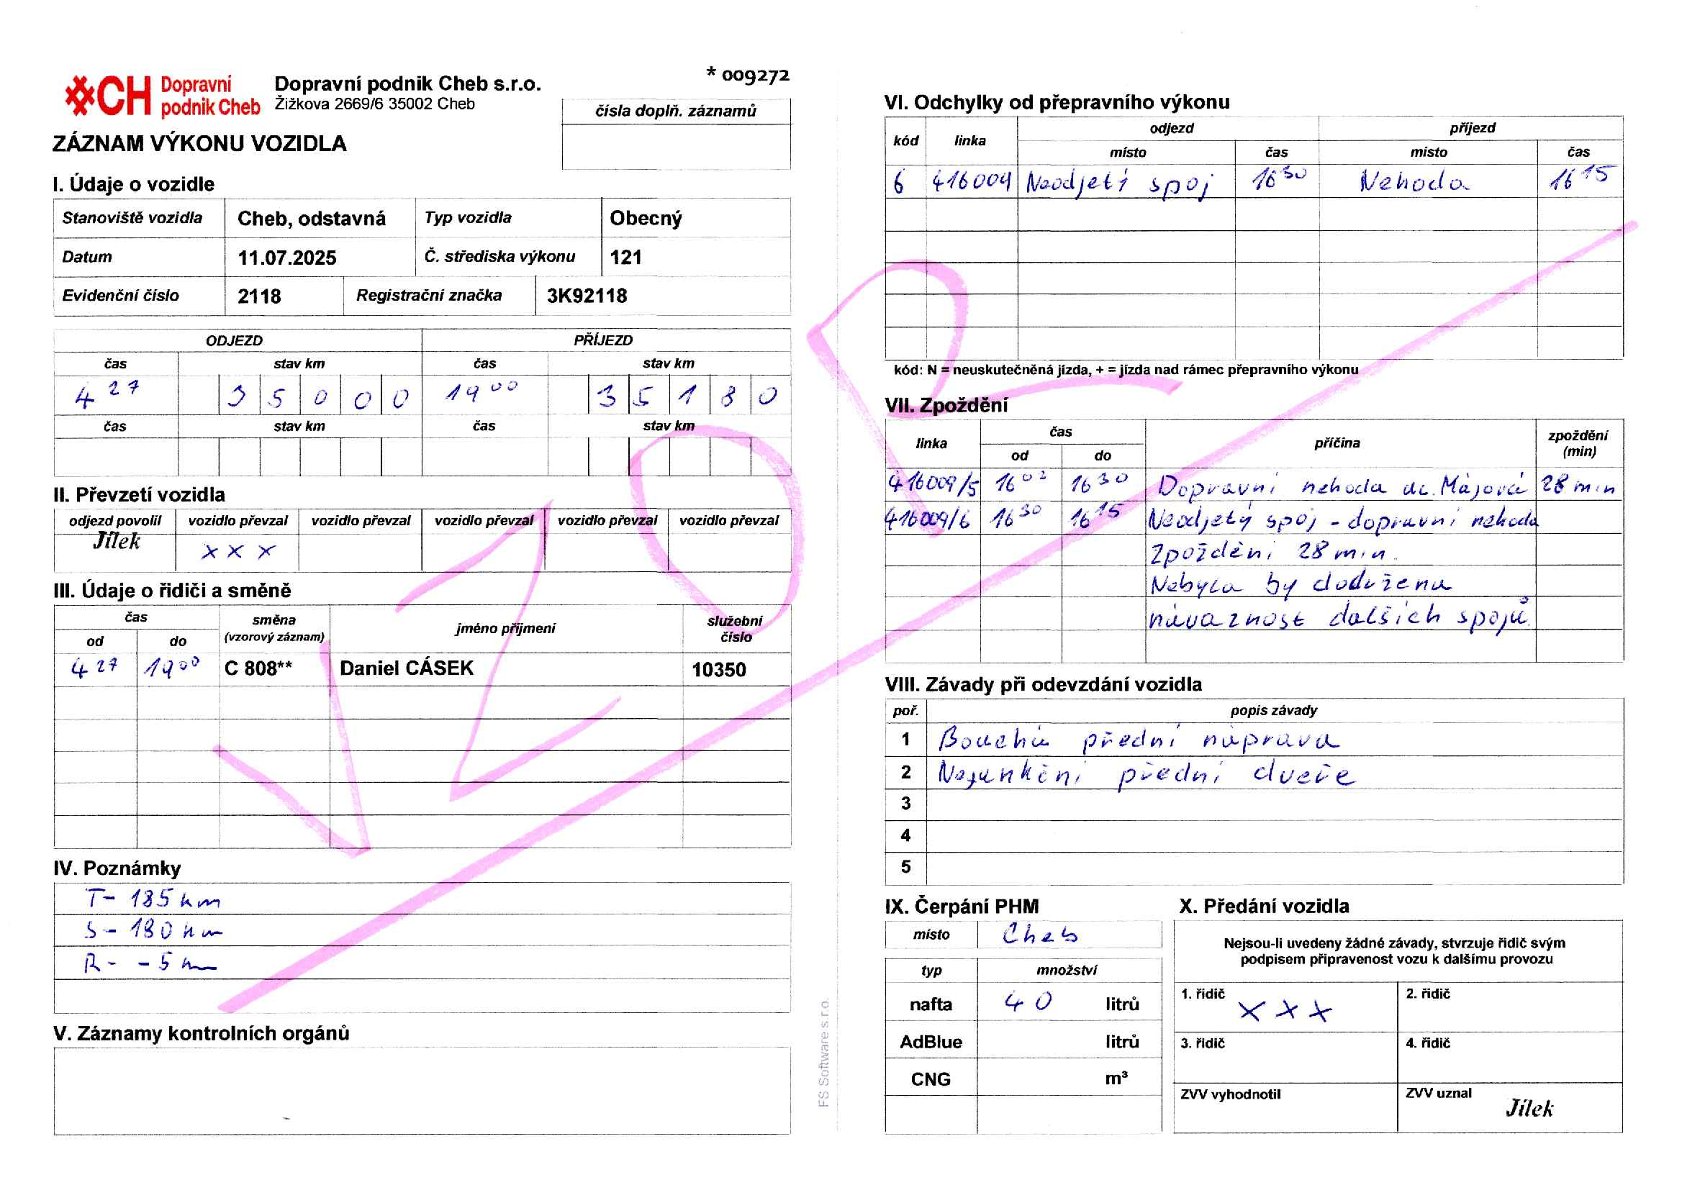 CH Dopravní podnik Cheb
Dopravní podnik Cheb s.r.o.
Žižkova 2669/6 35002 Cheb
* 009272
čísla doplň. záznamů
ZÁZNAM VÝKONU VOZIDLA
I. Údaje o vozidle
Stanoviště vozidla Cheb, odstavná Typ vozidla Obecný
Datum 11.07.2025 Č. střediska výkonu 121
Evidenční číslo 2118 Registrační značka 3K92118
ODJEZD PŘÍJEZD
čas stav km čas stav km
4 27 3 5 0 0 0 19 00 3 5 1 8 0
čas stav km čas stav km
II. Převzetí vozidla
odjezd povolil vozidlo převzal vozidlo převzal vozidlo převzal vozidlo převzal vozidlo převzal
Jílek x x x
III. Údaje o řidiči a směně
čas směna (vzorový záznam) jméno příjmení služební číslo
od do
4 27 19 00 C 808** Daniel CÁSEK 10350
IV. Poznámky
T- 185 km
S- 180 km
R- -5 km
V. Záznamy kontrolních orgánů
VZOR
FS Software s.r.o.
VI. Odchylky od přepravního výkonu
kód linka odjezd příjezd
místo čas místo čas
6 416009 Neodjetí spoj 16 30 Nehoda 16 15
kód: N = neuskutečněná jízda, + = jízda nad rámec přepravního výkonu
VII. Zpoždění
linka čas příčina zpoždění (min)
od do
416009/5 16 02 16 30 Dopravní nehoda ul. Májová 28 min
416009/6 16 30 16 15 Neodjetý spoj - dopravní nehoda
Zpoždění 28 min.
Nebyla by dodržena
návaznost dalších spojů.
VIII. Závady při odevzdání vozidla
poř. popis závady
1 Bouchá přední náprava
2 Nefunkční přední dveře
3
4
5
IX. Čerpání PHM
místo Cheb
typ množství
nafta 40 litrů
AdBlue litrů
CNG m³
X. Předání vozidla
Nejsou-li uvedeny žádné závady, stvrzuje řidič svým
podpisem připravenost vozu k dalšímu provozu
1. řidič x x x 2. řidič
3. řidič 4. řidič
ZVV vyhodnotil ZVV uznal Jílek